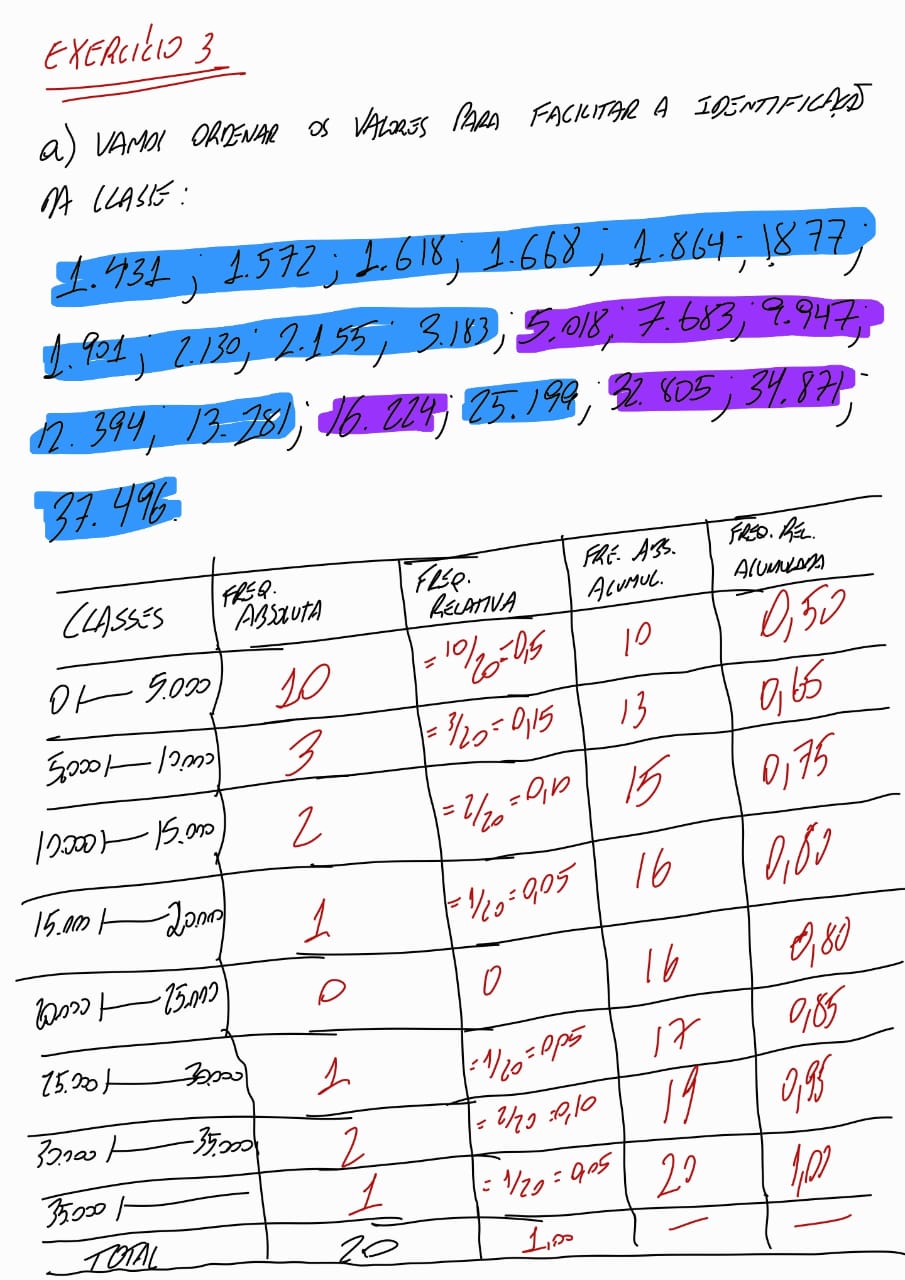 EXERCÍCIO 3
a) VAMOS ORDENAR OS VALORES PARA FACILITAR A IDENTIFICAÇÃO
DA CLASSE:
1.431 ; 1.572 ; 1.618 ; 1.668 ; 1.864 ; 1.877 ;
1.901 ; 2.130 ; 2.155 ; 3.183 ; 5.018 ; 7.683 ; 9.947 ;
12.394 ; 13.281 ; 16.224 ; 25.199 ; 32.805 ; 34.871 ;
37.496.
CLASSES FREQ. ABSOLUTA FREQ. RELATIVA FRE. ABS. ACUMUL. FREQ. REL. ACUMULADA
0 |— 5.000 10 = 10/20 = 0,5 10 0,50
5.000 |— 10.000 3 = 3/20 = 0,15 13 0,65
10.000 |— 15.000 2 = 2/20 = 0,10 15 0,75
15.000 |— 20.000 1 = 1/20 = 0,05 16 0,80
20.000 |— 25.000 0 0 16 0,80
25.000 |— 30.000 1 = 1/20 = 0,05 17 0,85
30.000 |— 35.000 2 = 2/20 = 0,10 19 0,95
35.000 |— 1 = 1/20 = 0,05 20 1,00
TOTAL 20 1,00 — —